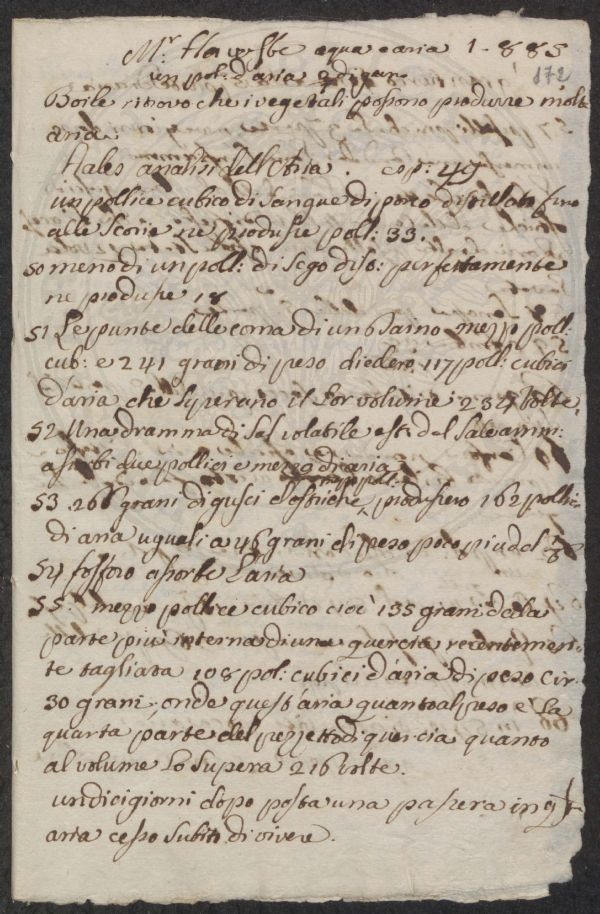 Mr. Hauxbe aqua e aria 1 - 885
un pol: d'aria 172
Boile ritrovo che i vegetali possono produrre molta
aria
Hales analisi dell'Aria. esp: 49
un pollice cubico di sangue di porco distillato fino
alle scorie ne produsse poll: 33.
50 meno di un poll: di sego dis: perfettamente
ne produsse 18
51 Le punte delle corna di un Daino mezzo poll:
cub: e 241 grani di peso diedero 117 poll: cubici
d'aria che superano il lor volume 234 volte
52 Una dramma di Sal volatile est: del Sale amm:
assorbi due pollici e mezzo di aria
53 266 grani di gusci d'ostriche produssero 162 pollici
di aria uguali a 46 grani di peso poco piu del 1/6
54 fosforo assorbe l'aria
55. mezzo pollice cubico cioè 135 grani della
parte piu interna di una quercia recentemen:
te tagliata 108 pol: cubici d'aria di peso cir:
30 grani, onde quest'aria quanto al peso e la
quarta parte del pezzetto di quercia quanto
al volume lo supera 216 volte.
undici giorni dopo posta una passera in qta
aria cesso subito di vivere.